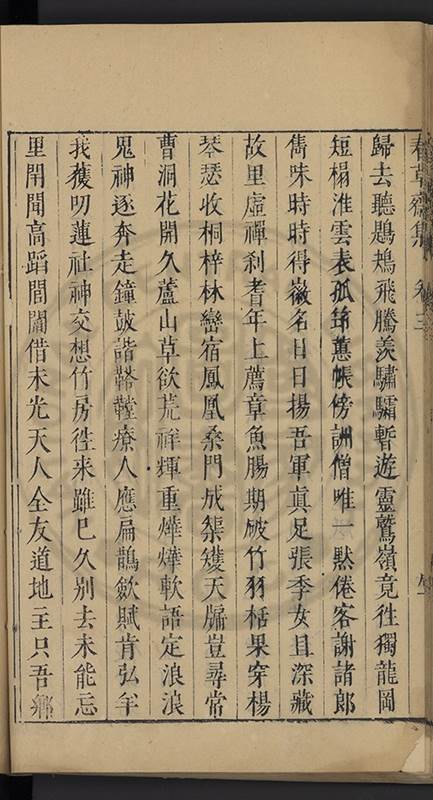 春草齋集 卷三
歸去聽鶗鴂飛騰羨驌驦暫遊靈鷲嶺竟徃獨龍岡
短榻淮雲表孤筇蕙帳傍詶僧唯一黙倦客謝諸郎
雋味時時得徽名日日揚吾軍真足張季女且深藏
故里虛禪刹耆年上薦章魚腸期破竹羽栝果穿楊
琴瑟收桐梓林巒宿鳳凰桑門成榘矱天牖豈尋常
曹洞花開久蘆山草欲荒祥輝重燁燁軟語定浪浪
鬼神逐奔走鐘鼓諧鞳鞺療人應扁鵲歛賦肯弘羊
我獲叨蓮社神交想竹房徃来雖已久別去未能忘
里開聞高蹈閭闔借末光天人全友道地主只吾鄉